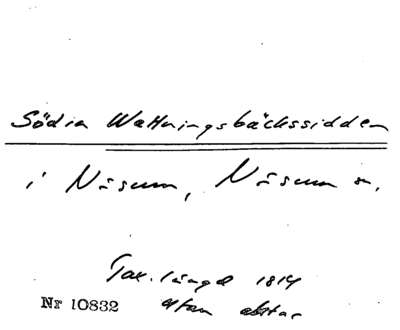 Södra Wattningsbäckssidden
i Näsum, Näsum sn.
Tax. längd 1814
utan abstar
Nr 10832